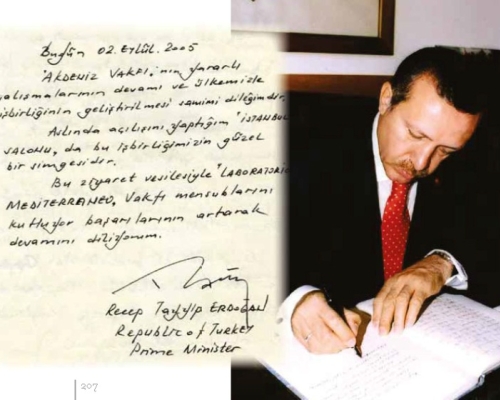 Bugün 02. Eylül. 2005
'AKDENİZ VAKFI,'nın yararlı
çalışmalarının devamı ve ülkemizle
işbirliğinin geliştirilmesi samimi dileğimdir.
Aslında açılışını yaptığım "İSTANBUL
SALONU, da bu işbirliğimizin güzel
bir simgesidir.
Bu ziyaret vesilesiyle "LABORATORİO
MEDİTERRANEO, Vakfı mensublarını
kutluyor başarılarının artarak
devamını diliyorum.
Recep Tayyip ERDOĞAN
Republic of TURKEY
Prime Minister
207